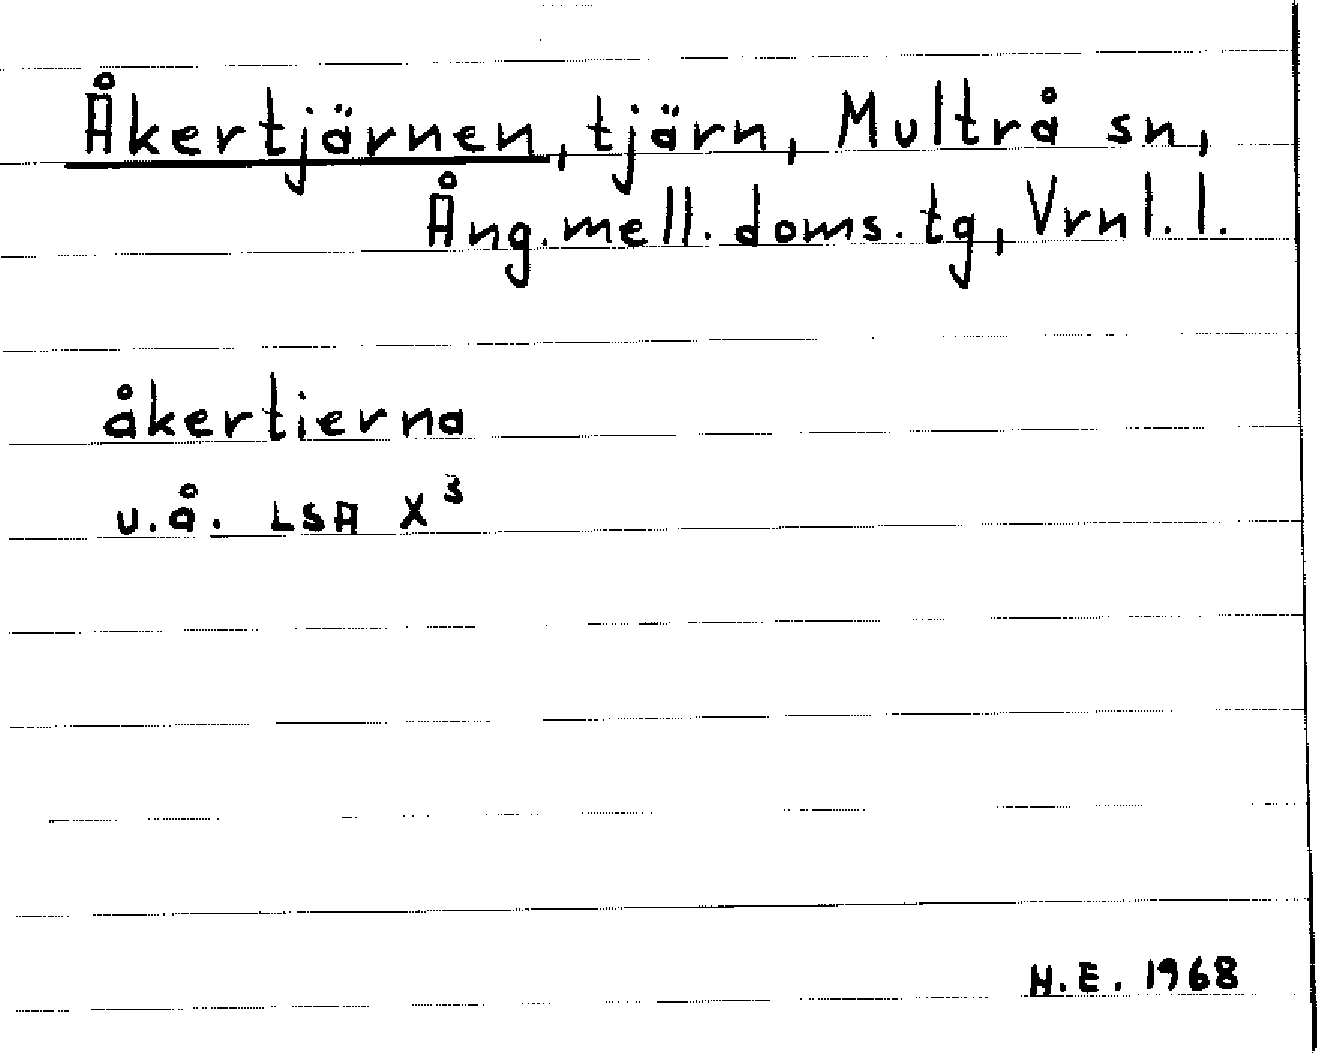 Åkertjärnen, tjärn, Multrå sn,
Ång.mell.doms.tg, Vrnl.l.
åkertierna
u.å. LSA X³
H.E. 1968